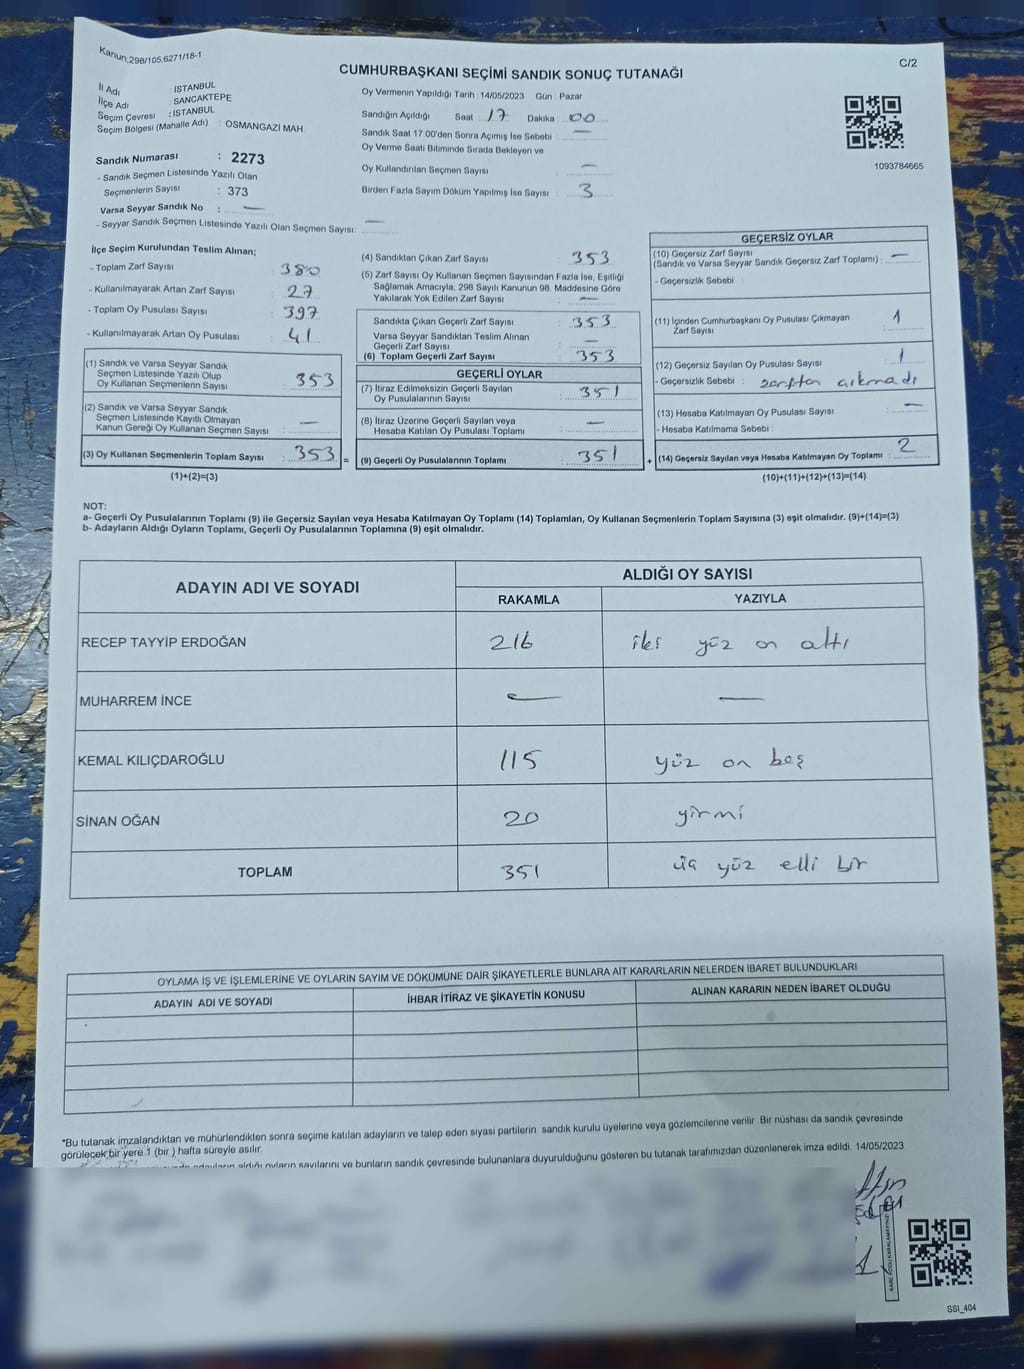 Kanun:298/105,6271/18-1
C/2
CUMHURBAŞKANI SEÇİMİ SANDIK SONUÇ TUTANAĞI
İl Adı : İSTANBUL
İlçe Adı : SANCAKTEPE
Seçim Çevresi : İSTANBUL
Seçim Bölgesi (Mahalle Adı) : OSMANGAZİ MAH.
Sandık Numarası : 2273
- Sandık Seçmen Listesinde Yazılı Olan
Seçmenlerin Sayısı : 373
Varsa Seyyar Sandık No : —
- Seyyar Sandık Seçmen Listesinde Yazılı Olan Seçmen Sayısı: —
Oy Vermenin Yapıldığı Tarih : 14/05/2023 Gün : Pazar
Sandığın Açıldığı Saat : 17 Dakika : 00
Sandık Saat 17.00'den Sonra Açımış İse Sebebi : —
Oy Verme Saati Bitiminde Sırada Bekleyen ve
Oy Kullandırılan Seçmen Sayısı : —
Birden Fazla Sayım Döküm Yapılmış İse Sayısı : 3
1093784665
İlçe Seçim Kurulundan Teslim Alınan;
- Toplam Zarf Sayısı : 380
- Kullanılmayarak Artan Zarf Sayısı : 27
- Toplam Oy Pusulası Sayısı : 397
- Kullanılmayarak Artan Oy Pusulası : 41
(1) Sandık ve Varsa Seyyar Sandık
Seçmen Listesinde Yazılı Olup
Oy Kullanan Seçmenlerin Sayısı : 353
(2) Sandık ve Varsa Seyyar Sandık
Seçmen Listesinde Kayıtlı Olmayan
Kanun Gereği Oy Kullanan Seçmen Sayısı : —
(3) Oy Kullanan Seçmenlerin Toplam Sayısı : 353 =
(1)+(2)=(3)
(4) Sandıktan Çıkan Zarf Sayısı : 353
(5) Zarf Sayısı Oy Kullanan Seçmen Sayısından Fazla İse, Eşitliği
Sağlamak Amacıyla, 298 Sayılı Kanunun 98. Maddesine Göre
Yakılarak Yok Edilen Zarf Sayısı : —
Sandıkta Çıkan Geçerli Zarf Sayısı : 353
Varsa Seyyar Sandıktan Teslim Alınan
Geçerli Zarf Sayısı : —
(6) Toplam Geçerli Zarf Sayısı : 353
GEÇERLİ OYLAR
(7) İtiraz Edilmeksizin Geçerli Sayılan
Oy Pusulalarının Sayısı : 351
(8) İtiraz Üzerine Geçerli Sayılan veya
Hesaba Katılan Oy Pusulası Toplamı : —
(9) Geçerli Oy Pusulalarının Toplamı : 351 +
GEÇERSİZ OYLAR
(10) Geçersiz Zarf Sayısı
(Sandık ve Varsa Seyyar Sandık Geçersiz Zarf Toplamı) : —
- Geçersizlik Sebebi :
(11) İçinden Cumhurbaşkanı Oy Pusulası Çıkmayan
Zarf Sayısı : 1
(12) Geçersiz Sayılan Oy Pusulası Sayısı : 1
- Geçersizlik Sebebi : zarftan çıkmadı
(13) Hesaba Katılmayan Oy Pusulası Sayısı : —
- Hesaba Katılmama Sebebi :
(14) Geçersiz Sayılan veya Hesaba Katılmayan Oy Toplamı : 2
(10)+(11)+(12)+(13)=(14)
NOT:
a- Geçerli Oy Pusulalarının Toplamı (9) ile Geçersiz Sayılan veya Hesaba Katılmayan Oy Toplamı (14) Toplamları, Oy Kullanan Seçmenlerin Toplam Sayısına (3) eşit olmalıdır. (9)+(14)=(3)
b- Adayların Aldığı Oyların Toplamı, Geçerli Oy Pusulalarının Toplamına (9) eşit olmalıdır.
ADAYIN ADI VE SOYADI ALDIĞI OY SAYISI
RAKAMLA YAZIYLA
RECEP TAYYİP ERDOĞAN 216 iki yüz on altı
MUHARREM İNCE — —
KEMAL KILIÇDAROĞLU 115 yüz on beş
SİNAN OĞAN 20 yirmi
TOPLAM 351 üç yüz elli bir
OYLAMA İŞ VE İŞLEMLERİNE VE OYLARIN SAYIM VE DÖKÜMÜNE DAİR ŞİKAYETLERLE BUNLARA AİT KARARLARIN NELERDEN İBARET BULUNDUKLARI
ADAYIN ADI VE SOYADI İHBAR İTİRAZ VE ŞİKAYETİN KONUSU ALINAN KARARIN NEDEN İBARET OLDUĞU
*Bu tutanak imzalandıktan ve mühürlendikten sonra seçime katılan adayların ve talep eden siyasi partilerin sandık kurulu üyelerine veya gözlemcilerine verilir. Bir nüshası da sandık çevresinde
görülecek bir yere 1 (bir ) hafta süreyle asılır.
aldığı oyların sayılarını ve bunların sandık çevresinde bulunanlara duyurulduğunu gösteren bu tutanak tarafımızdan düzenlenerek imza edildi. 14/05/2023
KARE KODU KARALAMAYINIZ!
SSI_404